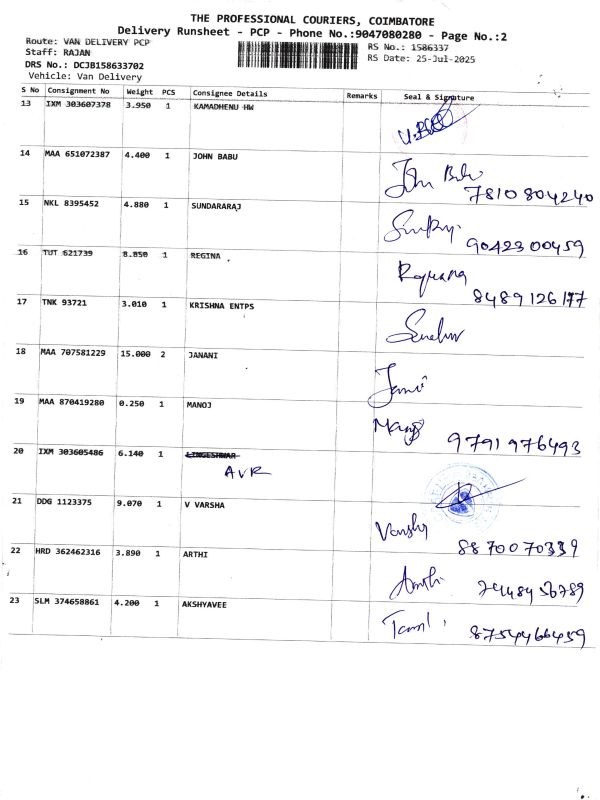 THE PROFESSIONAL COURIERS, COIMBATORE
Delivery Runsheet - PCP - Phone No.:9047080280 - Page No.:2
Route: VAN DELIVERY PCP
Staff: RAJAN
DRS No.: DCJB158633702
Vehicle: Van Delivery
RS No.: 1586337
RS Date: 25-Jul-2025
S No Consignment No Weight PCS Consignee Details Remarks Seal & Signature
13 IXM 303607378 3.950 1 KAMADHENU HW
14 MAA 651072387 4.400 1 JOHN BABU John Babu
7810804240
15 NKL 8395452 4.880 1 SUNDARARAJ
9042300459
16 TUT 621739 8.850 1 REGINA
8489126177
17 TNK 93721 3.010 1 KRISHNA ENTPS
18 MAA 707581229 15.000 2 JANANI
19 MAA 870419280 0.250 1 MANOJ Manoj
9791976493
20 IXM 303605486 6.140 1 LINGESHWAR
AVR
21 DDG 1123375 9.070 1 V VARSHA Varsha
8870070339
22 HRD 362462316 3.890 1 ARTHI Arthi
23 SLM 374658861 4.200 1 AKSHYAVEE Tamil
8754466459